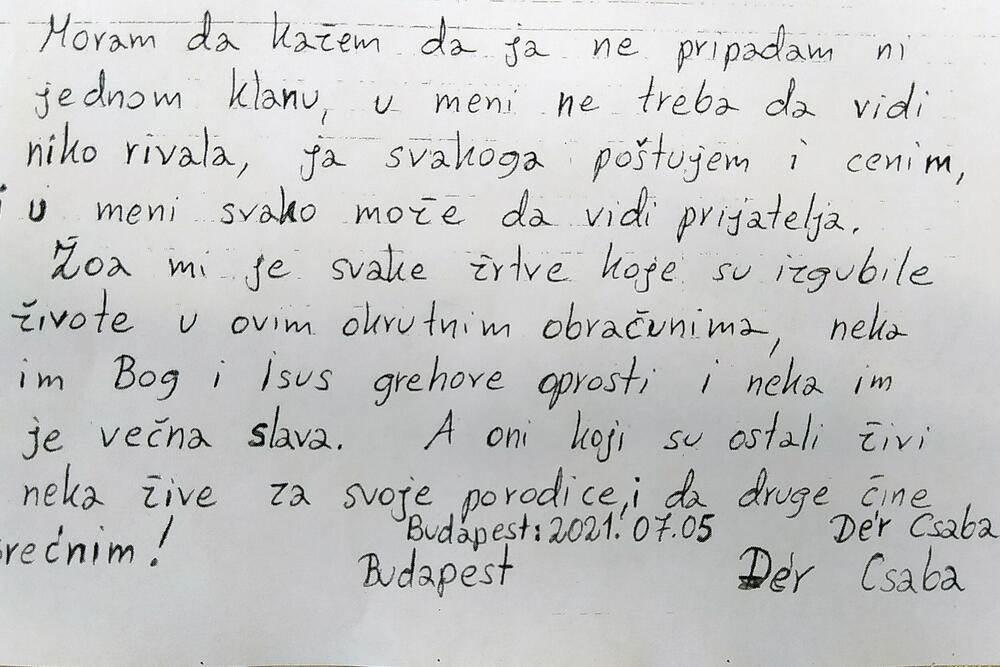 Moram da kažem da ja ne pripadam ni
jednom klanu, u meni ne treba da vidi
niko rivala, ja svakoga poštujem i cenim,
i u meni svako može da vidi prijatelja.
Žoa mi je svake žrtve koje su izgubile
živote u ovim okrutnim obračunima, neka
im Bog i Isus grehove oprosti i neka im
je večna slava. A oni koji su ostali živi
neka žive za svoje porodice, i da druge čine
srećnim!
Budapest: 2021. 07.05 Dér Csaba
Budapest Dér Csaba